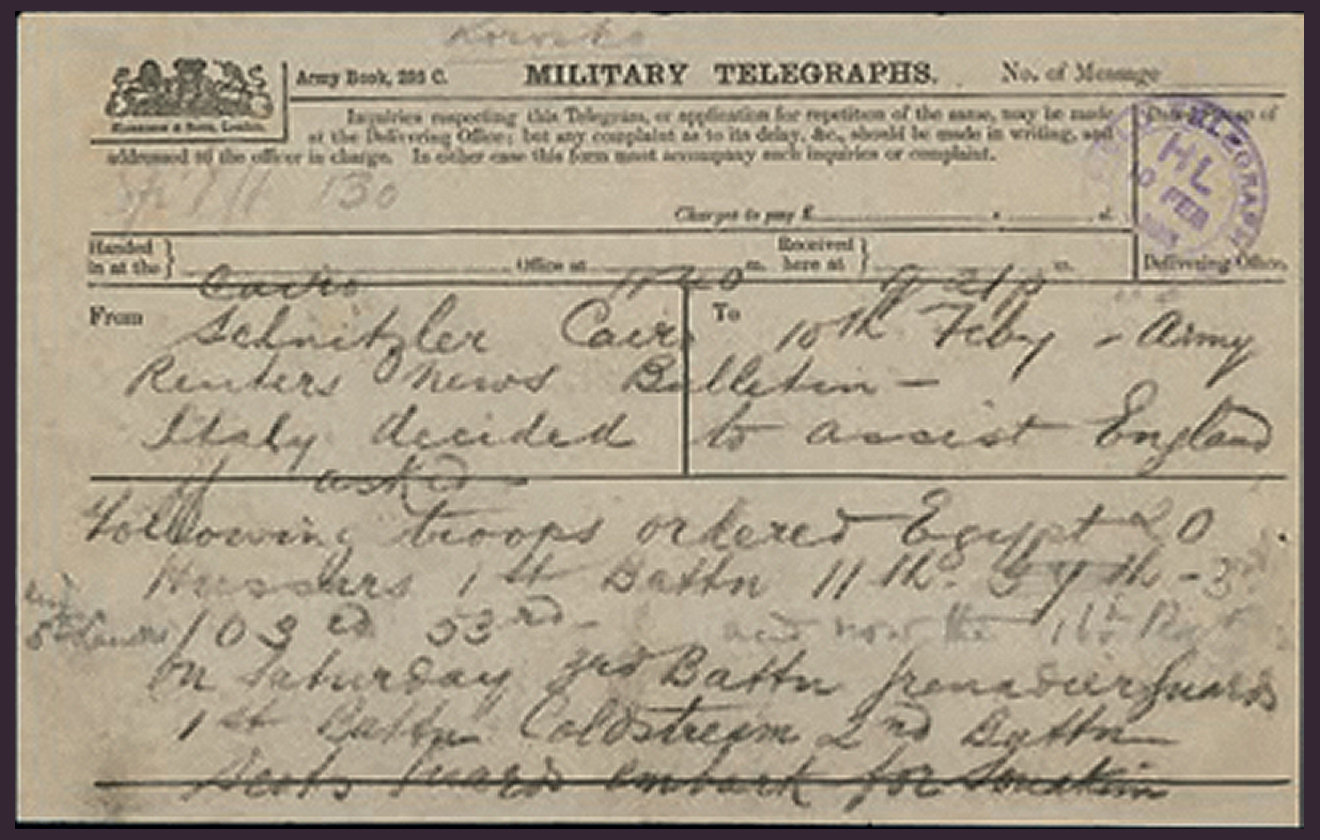 Korosko
Army Book, 295 C.
MILITARY TELEGRAPHS.
No. of Message
Harrison & Sons, London.
Inquiries respecting this Telegram, or application for repetition of the same, may be made
at the Delivering Office; but any complaint as to its delay, &c., should be made in writing, and
addressed to the officer in charge. In either case this form must accompany such inquiries or complaint.
130
Charges to pay £ s. d.
TELEGRAPH
HL
10 FEB
Handed in at the } Office at m. Received here at } m.
Delivering Office.
Cairo 1140 9 21 p
From Schnitzler Cairo To 10th Feby - Army
Reuters news Bulletin -
Italy decided to assist England
if asked -
Following troops ordered Egypt 20
Hussars 1st Battn 11th
103rd 53rd - and now the 16th Regt
5th Lancers
On Saturday 3rd Battn Grenadier Guards
1st Battn Coldstream 2nd Battn
Scots Guards embark for Souakim